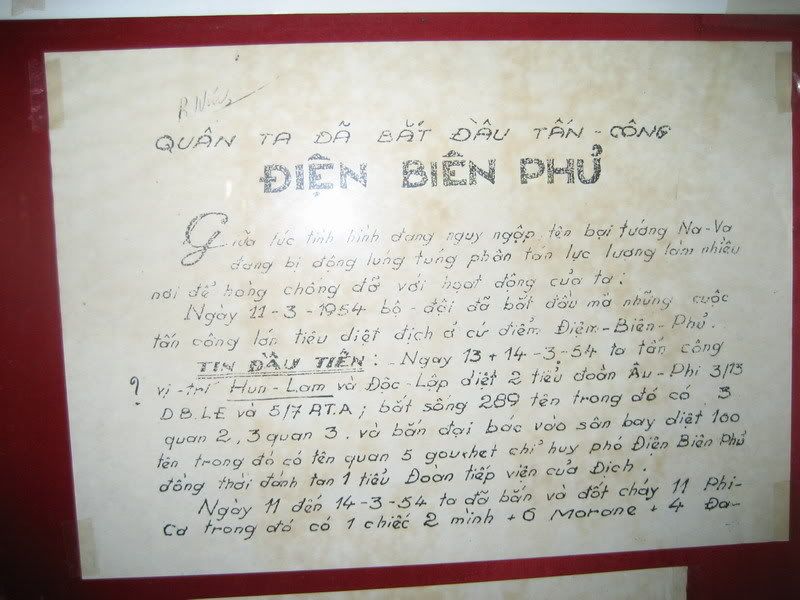 QUÂN TA ĐÃ BẮT ĐẦU TẤN-CÔNG
ĐIỆN BIÊN PHỦ
Giữa lúc tình hình đang nguy ngập tên bại tướng Na-Va
đang bị động lung tung phân tán lực lượng làm nhiều
nơi để hòng chống đỡ với hoạt động của ta:
Ngày 11-3-1954 bộ-đội đã bắt đầu mà những cuộc
tấn công lớn tiêu diệt địch ở cứ điểm Điệm-Biên-Phủ.
TIN ĐẦU TIÊN: Ngay 13+14-3-54 ta tấn công
? vị-trí Hun-Lam và Độc-Lập diệt 2 tiểu đoàn Âu-Phi 3/13
DB.LE và 5/7 RTA; bắt sống 289 tên trong đó có 3
quan 2, 3 quan 3. và bắn đại bác vào sân bay diệt 100
tên trong đó có tên quan 5 gouchet chỉ huy phó Điện Biên Phủ
đồng thời đánh tan 1 tiểu Đoàn tiếp viện của Địch.
Ngày 11 đến 14-3-54 ta đã bắn và đốt cháy 11 Phi-
Cơ trong đó có 1 chiếc 2 mình + 6 Morane + 4 Đa-